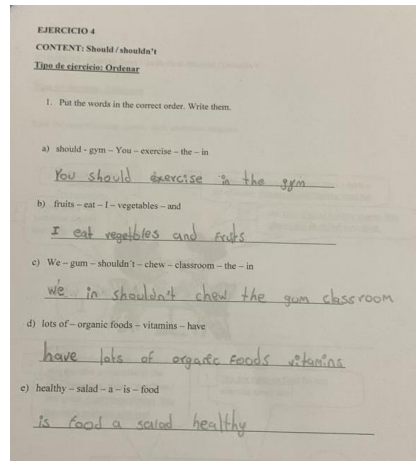 EJERCICIO 4
CONTENT: Should / shouldn't
Tipo de ejercicio: Ordenar
1. Put the words in the correct order. Write them.
a) should - gym – You – exercise – the – in
You should exercise in the gym
b) fruits – eat – I – vegetables – and
I eat vegetbles and Fruts
c) We – gum – shouldn´t – chew – classroom – the – in
We in shouldn't chew the gum classroom
d) lots of – organic foods – vitamins – have
have lots of organic Foods vitamins
e) healthy – salad – a – is – food
is food a salad healthy